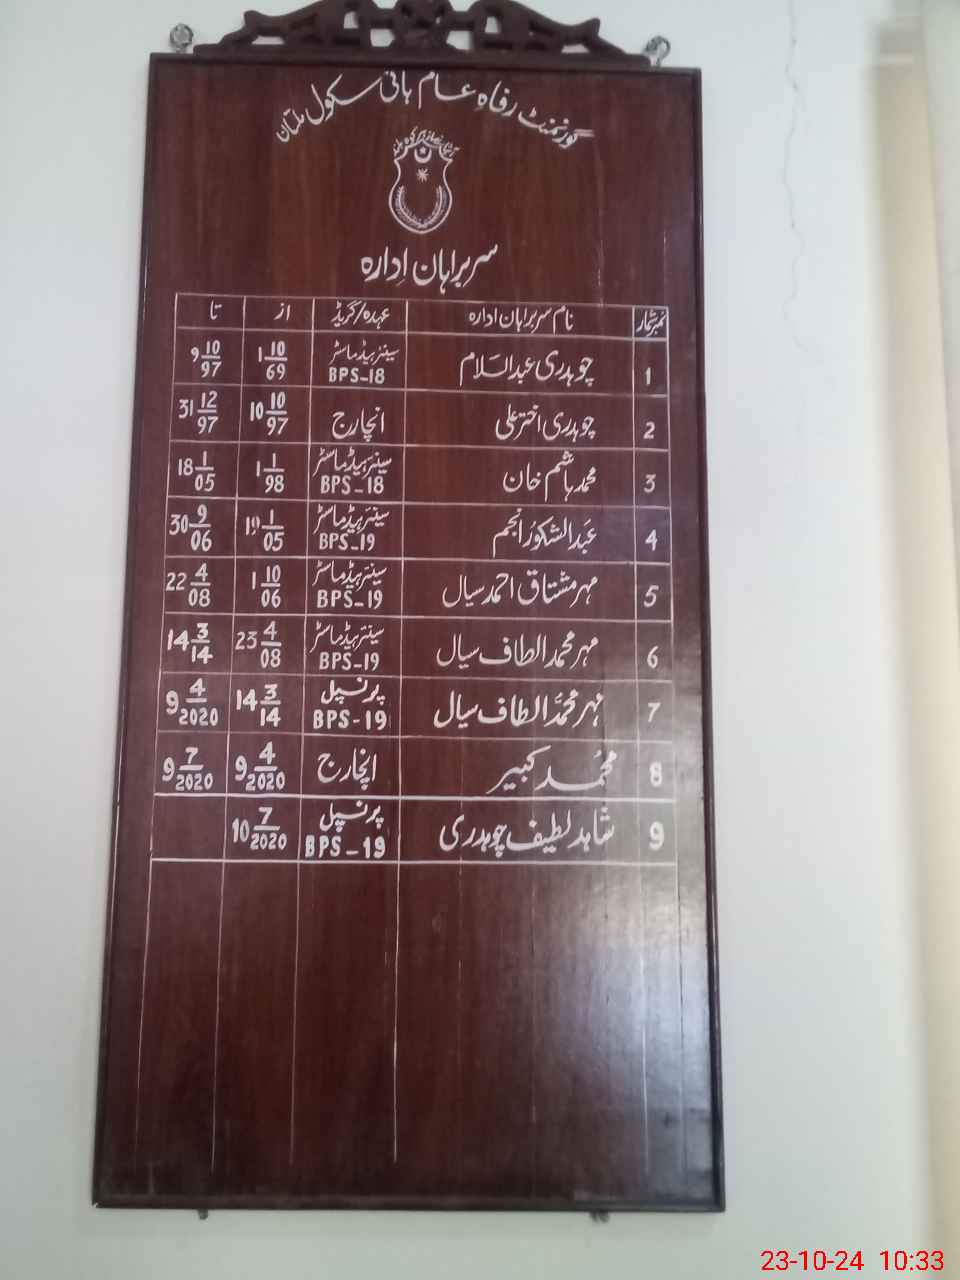 گورنمنٹ رفاہِ عام ہائی سکول ملتان
سربراہان اِدارہ
نمبر شمار نام سربراہان ادارہ عہدہ/گریڈ از تا
1 چوہدری عبدالسلام سینئر ہیڈماسٹر BPS-18 1 10/69 9 10/97
2 چوہدری اختر علی انچارج 10 10/97 31 12/97
3 محمد ہاشم خان سینئر ہیڈماسٹر BPS-18 1 1/98 18 1/05
4 عبدالشکور انجم سینئر ہیڈماسٹر BPS-19 19 1/05 30 9/06
5 مہر مشتاق احمد سیال سینئر ہیڈماسٹر BPS-19 1 10/06 22 4/08
6 مہر محمد الطاف سیال سینئر ہیڈماسٹر BPS-19 23 4/08 14 3/14
7 مہر محمد الطاف سیال پرنسپل BPS-19 14 3/14 9 4/2020
8 محمد کبیر انچارج 9 4/2020 9 7/2020
9 شاہد لطیف چوہدری پرنسپل BPS-19 10 7/2020
23-10-24 10:33